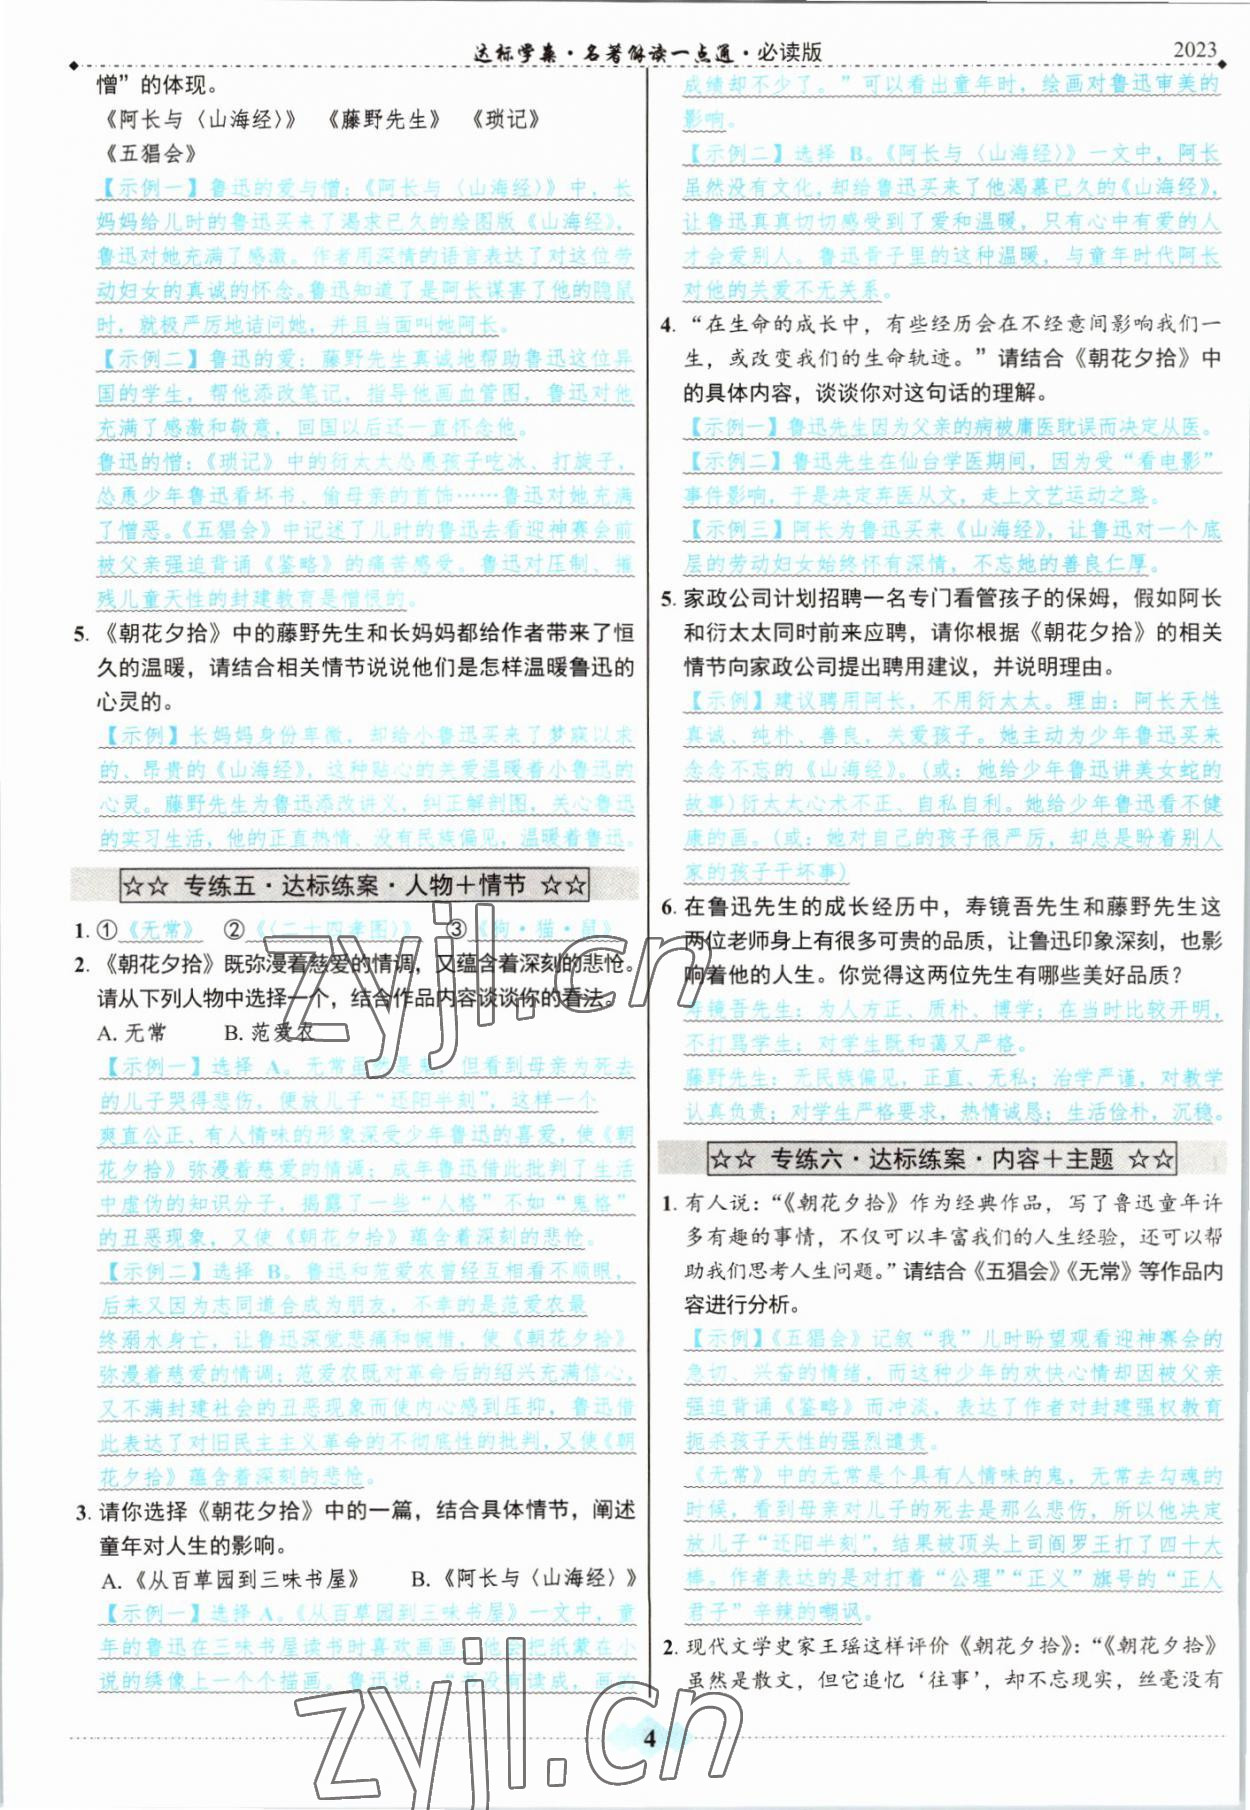 达标学案·名著解读一点通·必读版
2023
憎”的体现。
《阿长与〈山海经〉》 《藤野先生》 《琐记》
《五猖会》
【示例一】鲁迅的爱与憎：《阿长与〈山海经〉》中，长
妈妈给儿时的鲁迅买来了渴求已久的绘图版《山海经》，
鲁迅对她充满了感激。作者用深情的语言表达了对这位劳
动妇女的真诚的怀念。鲁迅知道了是阿长谋害了他的隐鼠
时，就极严厉地诘问她，并且当面叫她阿长。
【示例二】鲁迅的爱：藤野先生真诚地帮助鲁迅这位异
国的学生，帮他添改笔记，指导他画血管图，鲁迅对他
充满了感激和敬意，回国以后还一直怀念他。
鲁迅的憎：《琐记》中的衍太太怂恿孩子吃冰、打旋子，
怂恿少年鲁迅看坏书、偷母亲的首饰……鲁迅对她充满
了憎恶。《五猖会》中记述了儿时的鲁迅去看迎神赛会前
被父亲强迫背诵《鉴略》的痛苦感受。鲁迅对压制、摧
残儿童天性的封建教育是憎恨的。
5. 《朝花夕拾》中的藤野先生和长妈妈都给作者带来了恒
久的温暖，请结合相关情节说说他们是怎样温暖鲁迅的
心灵的。
【示例】长妈妈身份卑微，却给小鲁迅买来了梦寐以求
的、昂贵的《山海经》，这种贴心的关爱温暖着小鲁迅的
心灵。藤野先生为鲁迅添改讲义，纠正解剖图，关心鲁迅
的实习生活，他的正直热情、没有民族偏见，温暖着鲁迅。
☆☆ 专练五·达标练案·人物＋情节 ☆☆
1. ①《无常》 ②《〈二十四孝图〉》 ③《狗·猫·鼠》
2. 《朝花夕拾》既弥漫着慈爱的情调，又蕴含着深刻的悲怆。
请从下列人物中选择一个，结合作品内容谈谈你的看法。
A. 无常 B. 范爱农
【示例一】选择 A。无常虽然是鬼，但看到母亲为死去
的儿子哭得悲伤，便放儿子“还阳半刻”，这样一个
爽直公正、有人情味的形象深受少年鲁迅的喜爱，使《朝
花夕拾》弥漫着慈爱的情调；成年鲁迅借此批判了生活
中虚伪的知识分子，揭露了一些“人格”不如“鬼格”
的丑恶现象，又使《朝花夕拾》蕴含着深刻的悲怆。
【示例二】选择 B。鲁迅和范爱农曾经互相看不顺眼，
后来又因为志同道合成为朋友，不幸的是范爱农最
终溺水身亡，让鲁迅深觉悲痛和惋惜，使《朝花夕拾》
弥漫着慈爱的情调；范爱农既对革命后的绍兴充满信心，
又不满封建社会的丑恶现象而使内心感到压抑，鲁迅借
此表达了对旧民主主义革命的不彻底性的批判，又使《朝
花夕拾》蕴含着深刻的悲怆。
3. 请你选择《朝花夕拾》中的一篇，结合具体情节，阐述
童年对人生的影响。
A.《从百草园到三味书屋》 B.《阿长与〈山海经〉》
【示例一】选择A。《从百草园到三味书屋》一文中，童
年的鲁迅在三味书屋读书时喜欢画画，他会把纸蒙在小
说的绣像上一个个描画。鲁迅说：“书没有读成，画的
成绩却不少了。”可以看出童年时，绘画对鲁迅审美的
影响。
【示例二】选择 B。《阿长与〈山海经〉》一文中，阿长
虽然没有文化，却给鲁迅买来了他渴慕已久的《山海经》，
让鲁迅真真切切感受到了爱和温暖，只有心中有爱的人
才会爱别人。鲁迅骨子里的这种温暖，与童年时代阿长
对他的关爱不无关系。
4. “在生命的成长中，有些经历会在不经意间影响我们一
生，或改变我们的生命轨迹。”请结合《朝花夕拾》中
的具体内容，谈谈你对这句话的理解。
【示例一】鲁迅先生因为父亲的病被庸医耽误而决定从医。
【示例二】鲁迅先生在仙台学医期间，因为受“看电影”
事件影响，于是决定弃医从文，走上文艺运动之路。
【示例三】阿长为鲁迅买来《山海经》，让鲁迅对一个底
层的劳动妇女始终怀有深情，不忘她的善良仁厚。
5. 家政公司计划招聘一名专门看管孩子的保姆，假如阿长
和衍太太同时前来应聘，请你根据《朝花夕拾》的相关
情节向家政公司提出聘用建议，并说明理由。
【示例】建议聘用阿长，不用衍太太。理由：阿长天性
真诚、纯朴、善良，关爱孩子。她主动为少年鲁迅买来
念念不忘的《山海经》。（或：她给少年鲁迅讲美女蛇的
故事）衍太太心术不正、自私自利。她给少年鲁迅看不健
康的画。（或：她对自己的孩子很严厉，却总是盼着别人
家的孩子干坏事）
6. 在鲁迅先生的成长经历中，寿镜吾先生和藤野先生这
两位老师身上有很多可贵的品质，让鲁迅印象深刻，也影
响着他的人生。你觉得这两位先生有哪些美好品质？
寿镜吾先生：为人方正、质朴、博学；在当时比较开明，
不打骂学生；对学生既和蔼又严格。
藤野先生：无民族偏见，正直、无私；治学严谨，对教学
认真负责；对学生严格要求，热情诚恳；生活俭朴，沉稳。
☆☆ 专练六·达标练案·内容＋主题 ☆☆
1. 有人说：“《朝花夕拾》作为经典作品，写了鲁迅童年许
多有趣的事情，不仅可以丰富我们的人生经验，还可以帮
助我们思考人生问题。”请结合《五猖会》《无常》等作品内
容进行分析。
【示例】《五猖会》记叙“我”儿时盼望观看迎神赛会的
急切、兴奋的情绪，而这种少年的欢快心情却因被父亲
强迫背诵《鉴略》而冲淡，表达了作者对封建强权教育
扼杀孩子天性的强烈谴责。
《无常》中的无常是个具有人情味的鬼，无常去勾魂的
时候，看到母亲对儿子的死去是那么悲伤，所以他决定
放儿子“还阳半刻”，结果被顶头上司阎罗王打了四十大
棒。作者表达的是对打着“公理”“正义”旗号的“正人
君子”辛辣的嘲讽。
2. 现代文学史家王瑶这样评价《朝花夕拾》：“《朝花夕拾》
虽然是散文，但它追忆‘往事’，却不忘现实，丝毫没有
4
zyjl.cn
zyjl.cn